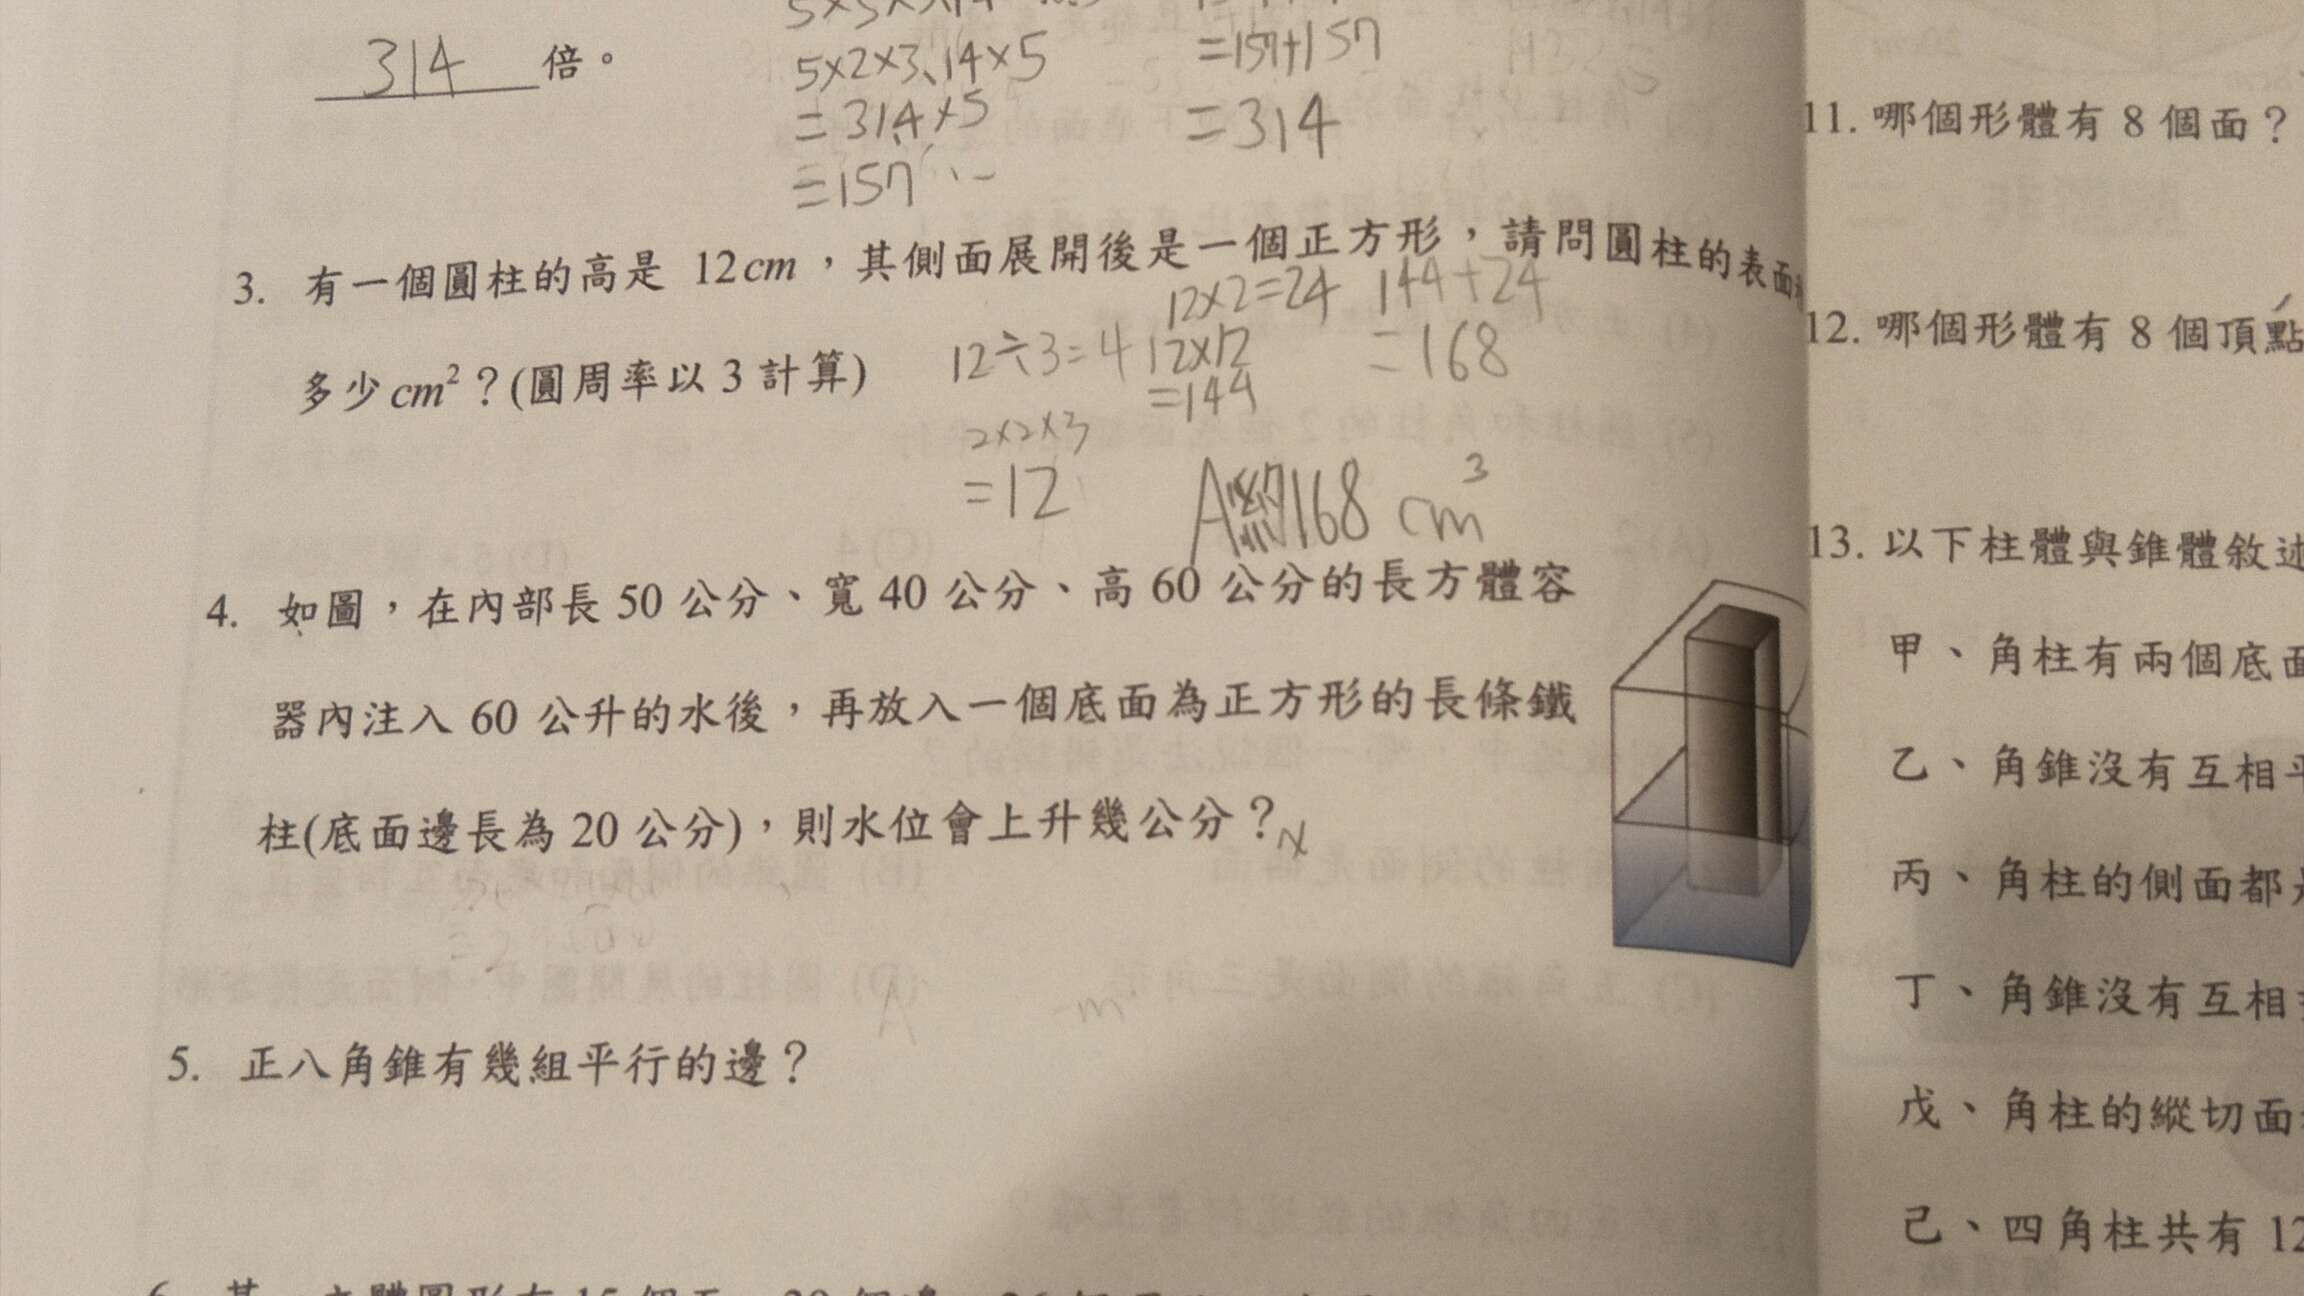 314 倍。
5×2×3.14×5
=31.4×5
=157
=157+157
=314
3. 有一個圓柱的高是 12cm，其側面展開後是一個正方形，請問圓柱的表面
多少cm²？(圓周率以 3 計算)
12÷3=4
2×2×3
=12
12×2=24
12×12
=144
144+24
=168
A約168 cm³
4. 如圖，在內部長 50 公分、寬 40 公分、高 60 公分的長方體容
器內注入 60 公升的水後，再放入一個底面為正方形的長條鐵
柱(底面邊長為 20 公分)，則水位會上升幾公分？
5. 正八角錐有幾組平行的邊？
11. 哪個形體有 8 個面？
12. 哪個形體有 8 個頂點
13. 以下柱體與錐體敘述
甲、角柱有兩個底面
乙、角錐沒有互相平
丙、角柱的側面都
丁、角錐沒有互相
戊、角柱的縱切面
己、四角柱共有 12